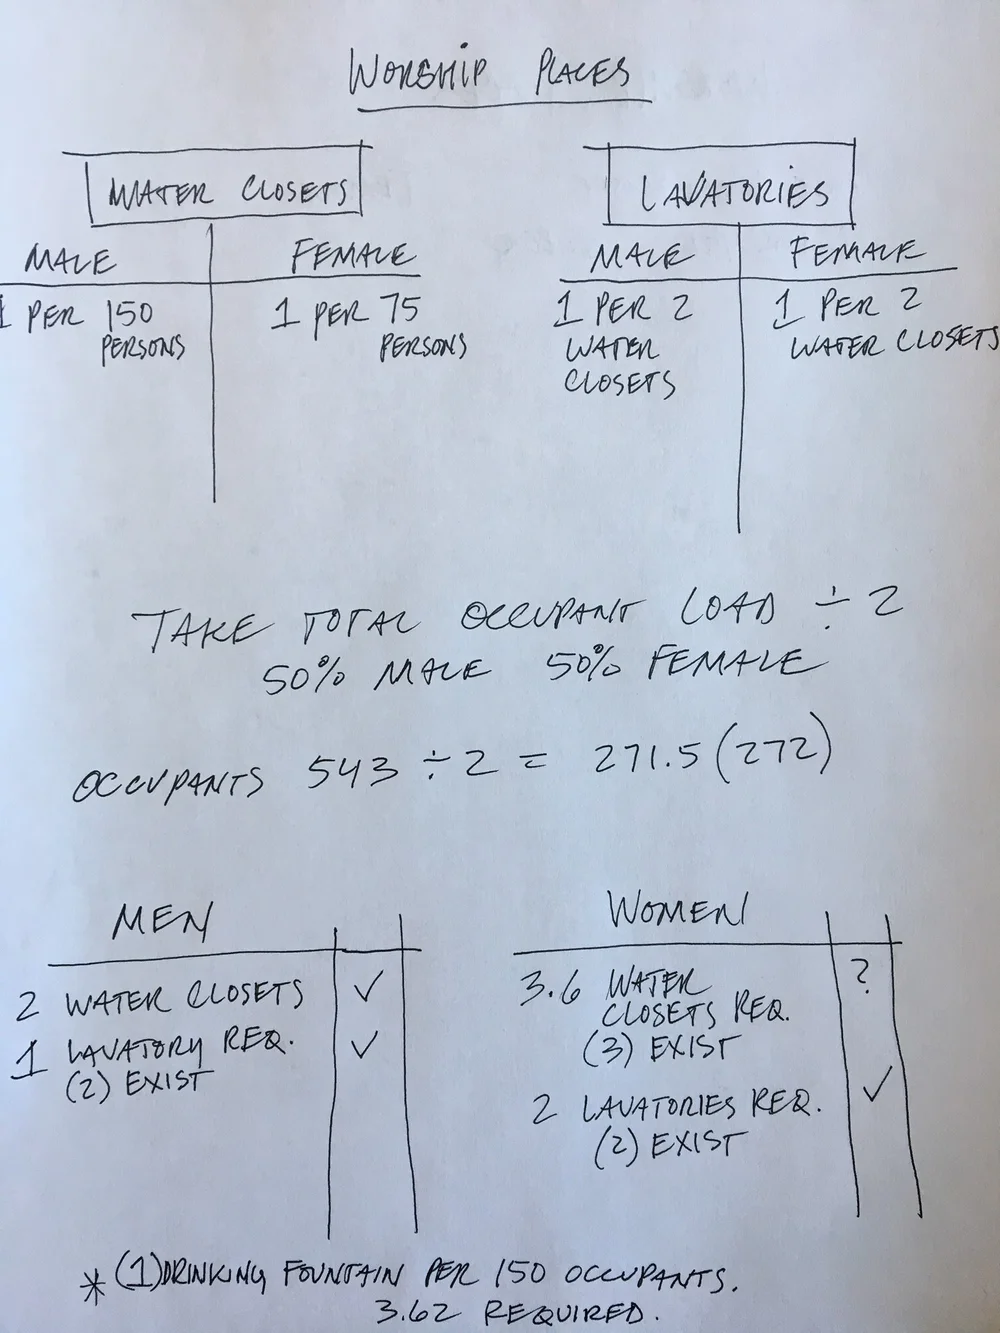 WORSHIP PLACES
WATER CLOSETS
MALE
FEMALE
1 PER 150
PERSONS
1 PER 75
PERSONS
LAVATORIES
MALE
FEMALE
1 PER 2
WATER
CLOSETS
1 PER 2
WATER CLOSETS
TAKE TOTAL OCCUPANT LOAD ÷ 2
50% MALE 50% FEMALE
OCCUPANTS 543 ÷ 2 = 271.5 (272)
MEN
2 WATER CLOSETS ✓
1 LAVATORY REQ. ✓
(2) EXIST
WOMEN
3.6 WATER ?
CLOSETS REQ.
(3) EXIST
2 LAVATORIES REQ. ✓
(2) EXIST
* (1) DRINKING FOUNTAIN PER 150 OCCUPANTS.
3.62 REQUIRED.